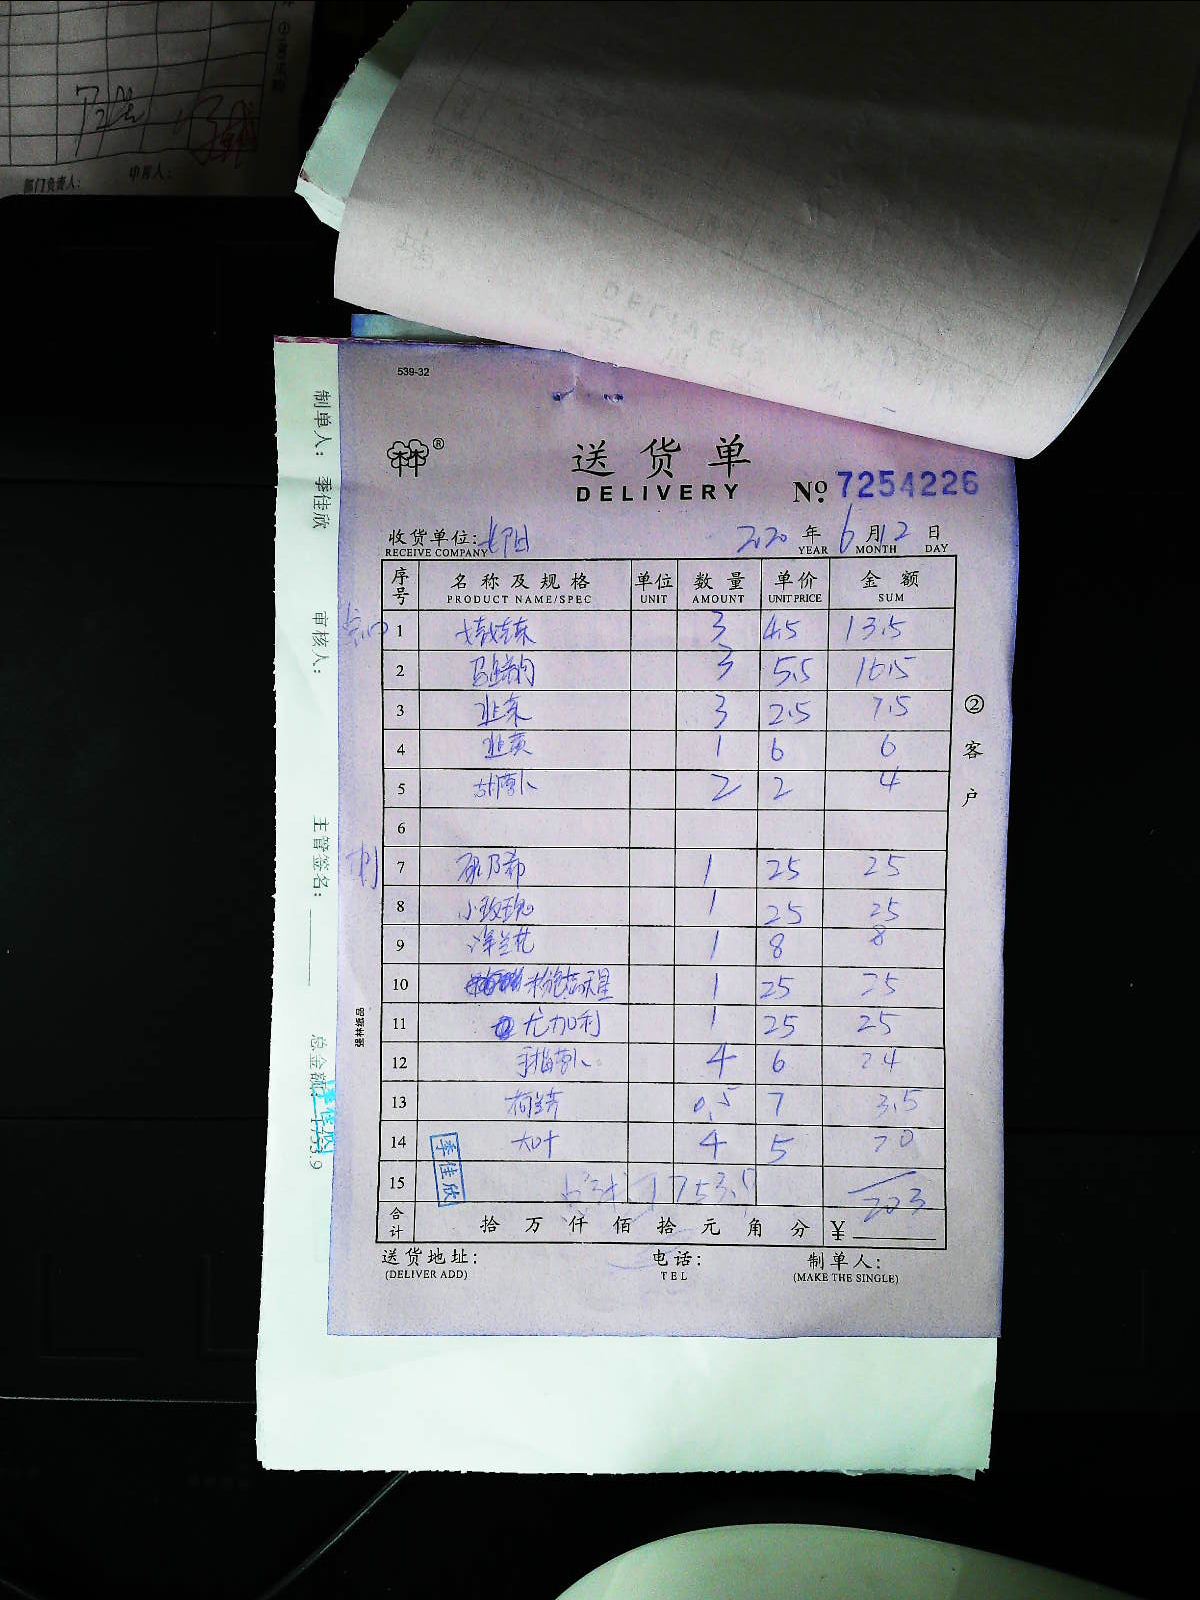 部门负责人: 申请人:
539-32
®
送货单
DELIVERY
№ 7254226
收货单位:
RECEIVE COMPANY
2020 年 6 月 12 日
YEAR MONTH DAY
序号 名称及规格 单位 数量 单价 金额
PRODUCT NAME/SPEC UNIT AMOUNT UNIT PRICE SUM
1 3 4.5 13.5
2 3 5.5 16.5
3 韭菜 3 2.5 7.5
4 韭黄 1 6 6
5 胡萝卜 2 2 4
6
7 1 25 25
8 小玫瑰 1 25 25
9 洋兰花 1 8 8
10 1 25 25
11 尤加利 1 25 25
12 手指萝卜 4 6 24
13 0.5 7 3.5
14 大叶 4 5 20
15 203
合计 拾 万 仟 佰 拾 元 角 分 ¥
送货地址: 电话: 制单人:
(DELIVER ADD) TEL (MAKE THE SINGLE)
②客户
强林纸品
季佳欣
制单人: 季佳欣 审核人: 主管签名: 总金额: